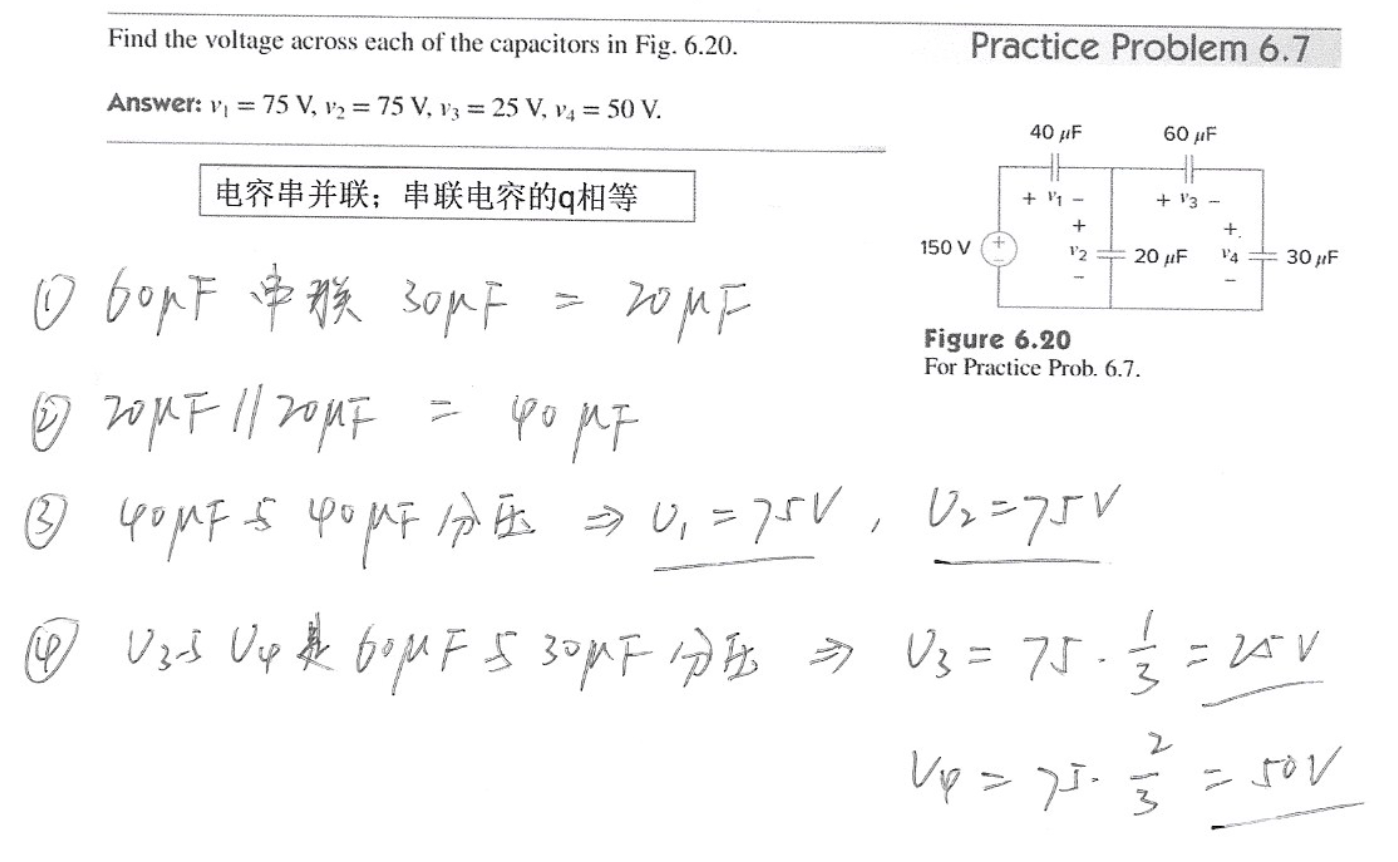 Find the voltage across each of the capacitors in Fig. 6.20.
Practice Problem 6.7
Answer: v₁ = 75 V, v₂ = 75 V, v₃ = 25 V, v₄ = 50 V.
电容串并联；串联电容的q相等
40 μF 60 μF
+ v₁ − + v₃ −
150 V + − + v₂ − 20 μF +. v₄ − 30 μF
Figure 6.20
For Practice Prob. 6.7.
① 60μF 串联 30μF = 20μF
② 20μF // 20μF = 40μF
③ 40μF与40μF分压 ⇒ U₁ = 75V, U₂ = 75V
④ U₃与U₄是60μF与30μF分压 ⇒ U₃ = 75 · 1/3 = 25V
U₄ = 75 · 2/3 = 50V